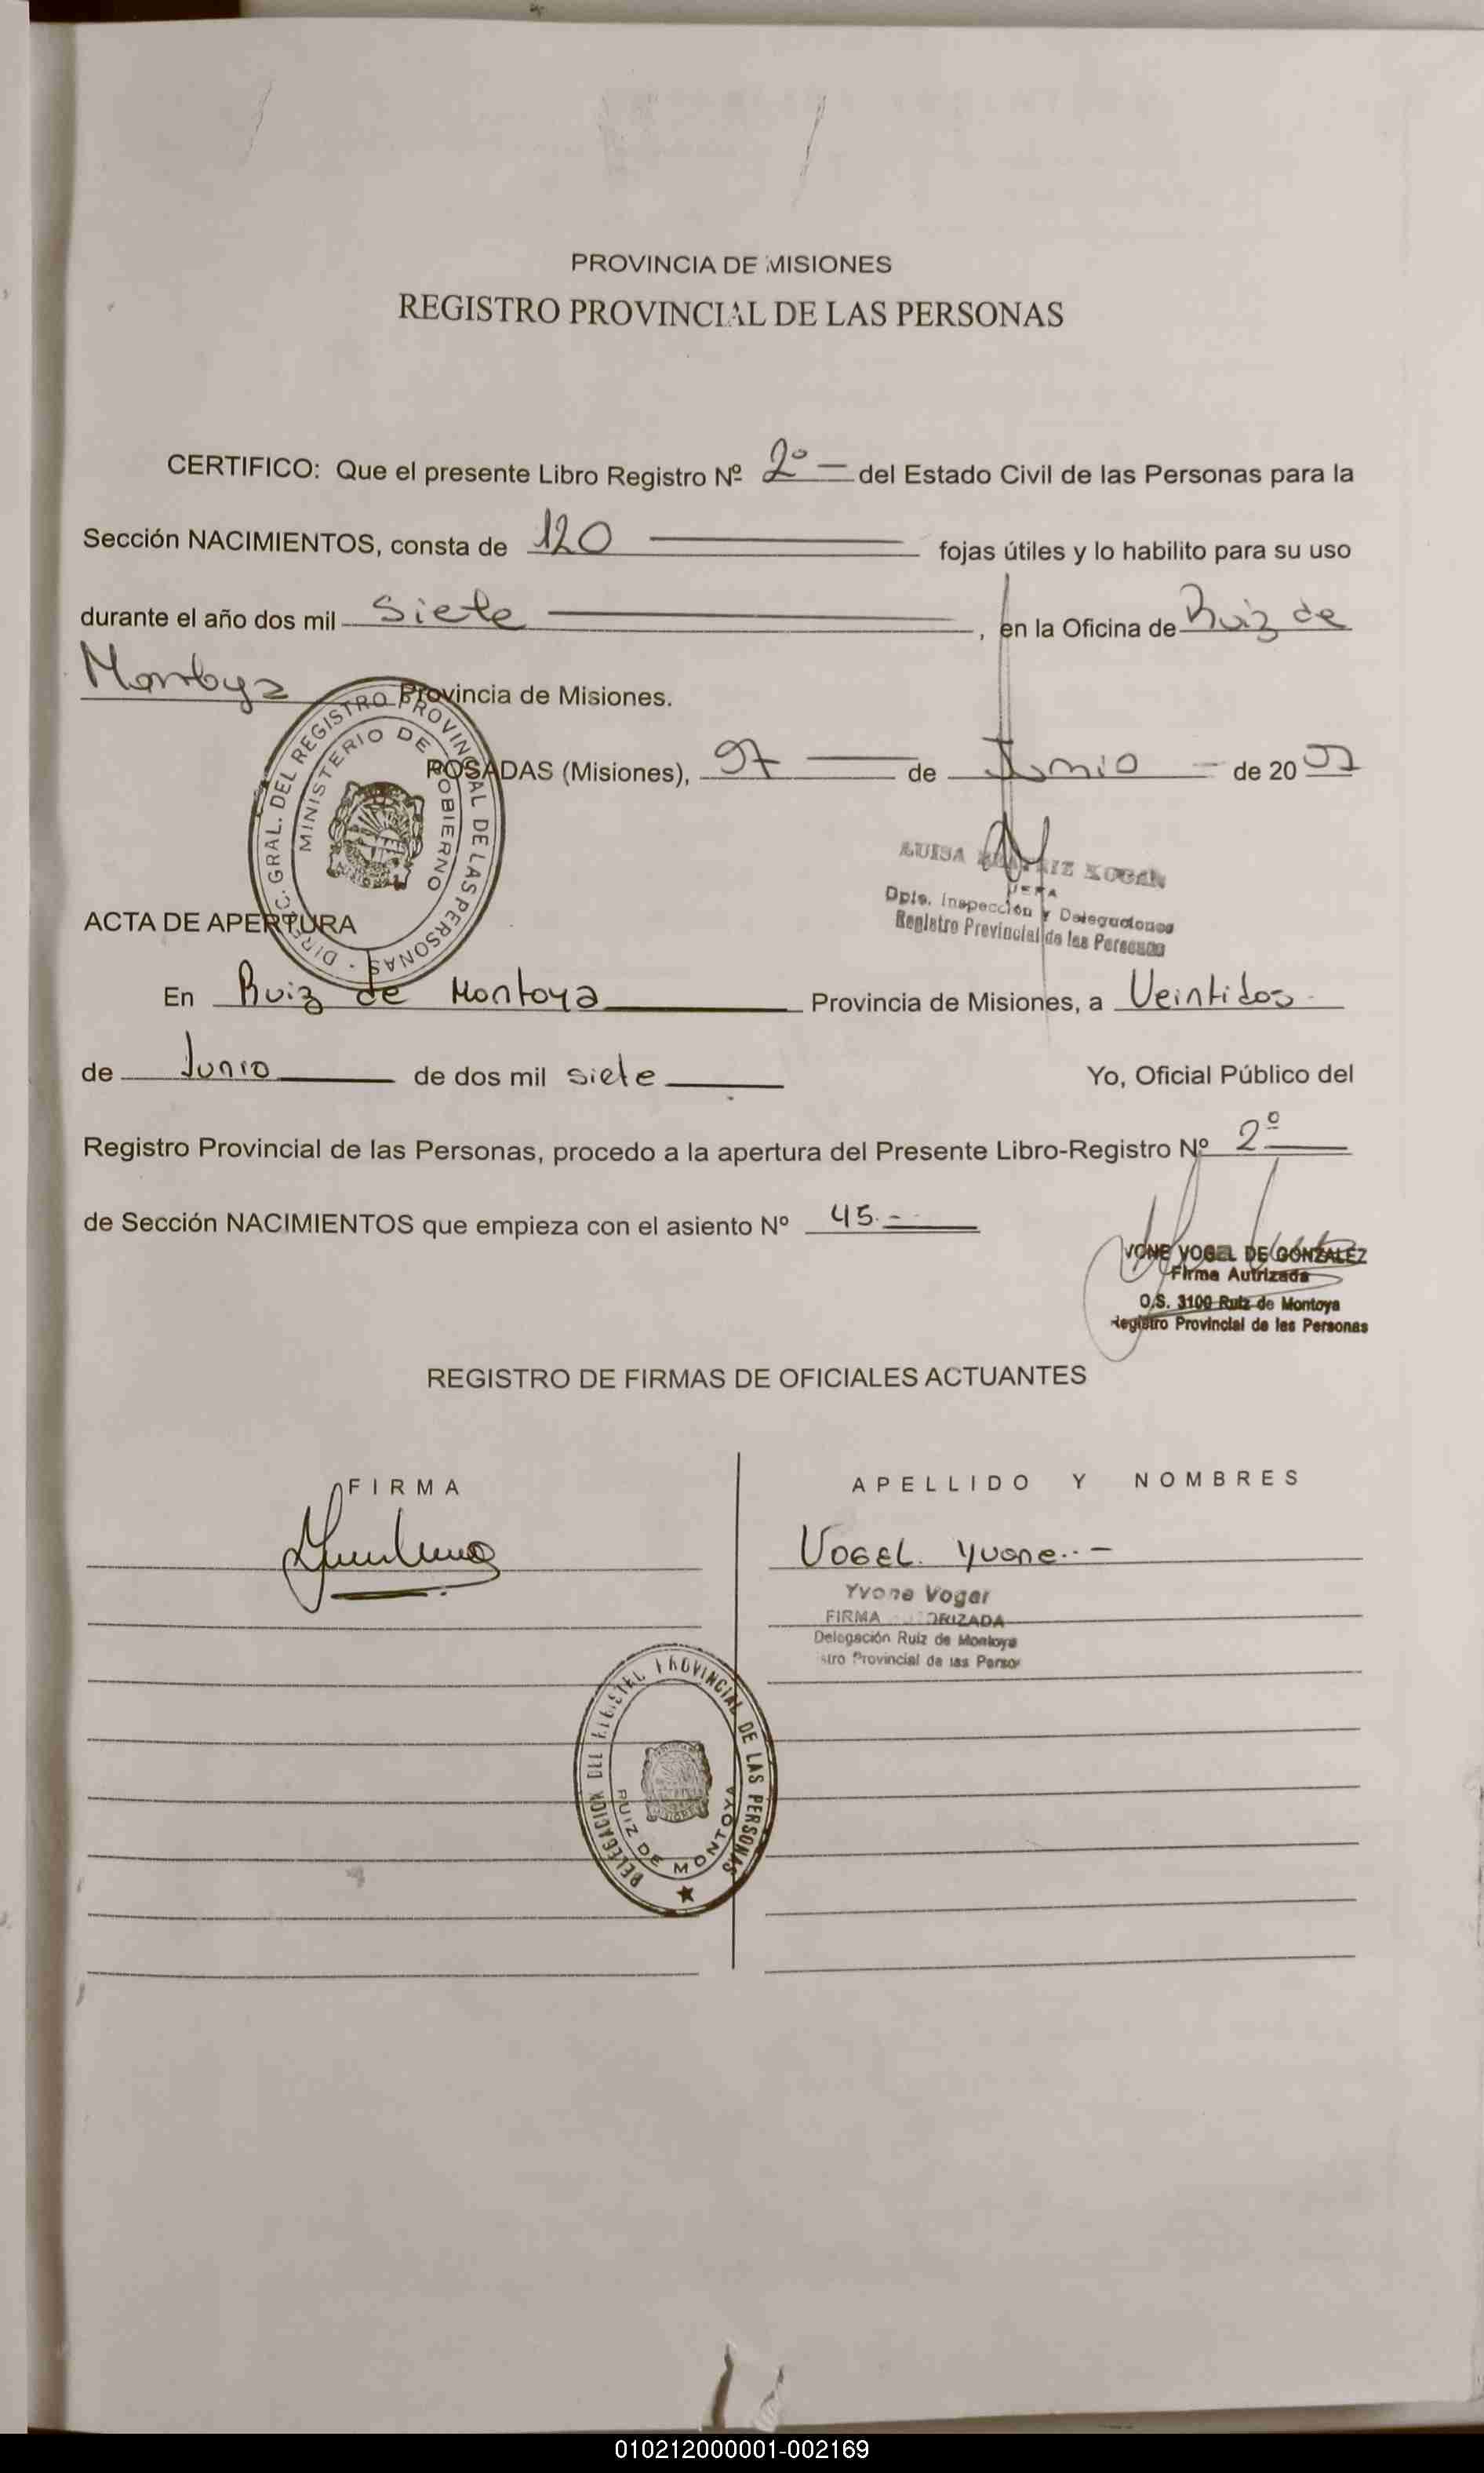 PROVINCIA DE MISIONES
REGISTRO PROVINCIAL DE LAS PERSONAS
CERTIFICO: Que el presente Libro Registro Nº 2º — del Estado Civil de las Personas para la
Sección NACIMIENTOS, consta de 120 fojas útiles y lo habilito para su uso
durante el año dos mil Siete, en la Oficina de Ruiz de
Montoya Provincia de Misiones.
POSADAS (Misiones), 07 de Junio de 2007
DIREC. GRAL. DEL REGISTRO PROVINCIAL DE LAS PERSONAS
MINISTERIO DE GOBIERNO
LUISA BEATRIZ
JEFA
Dpto. Inspección y Delegaciones
Registro Provincial de las Personas
ACTA DE APERTURA
En Ruiz de Montoya Provincia de Misiones, a Veintidos
de Junio de dos mil siete Yo, Oficial Público del
Registro Provincial de las Personas, procedo a la apertura del Presente Libro-Registro Nº 2º
de Sección NACIMIENTOS que empieza con el asiento Nº 45.-
VONE VOGEL DE GONZALEZ
Firma Autrizada
O.S. 3100 Ruiz de Montoya
Registro Provincial de las Personas
REGISTRO DE FIRMAS DE OFICIALES ACTUANTES
FIRMA APELLIDO Y NOMBRES
VOGEL Yvone.. -
Yvone Vogel
FIRMA AUTORIZADA
Delegación Ruiz de Montoya
stro Provincial de las Person
DELEGACION DEL REGISTRO PROVINCIAL DE LAS PERSONAS
RUIZ DE MONTOYA
010212000001-002169